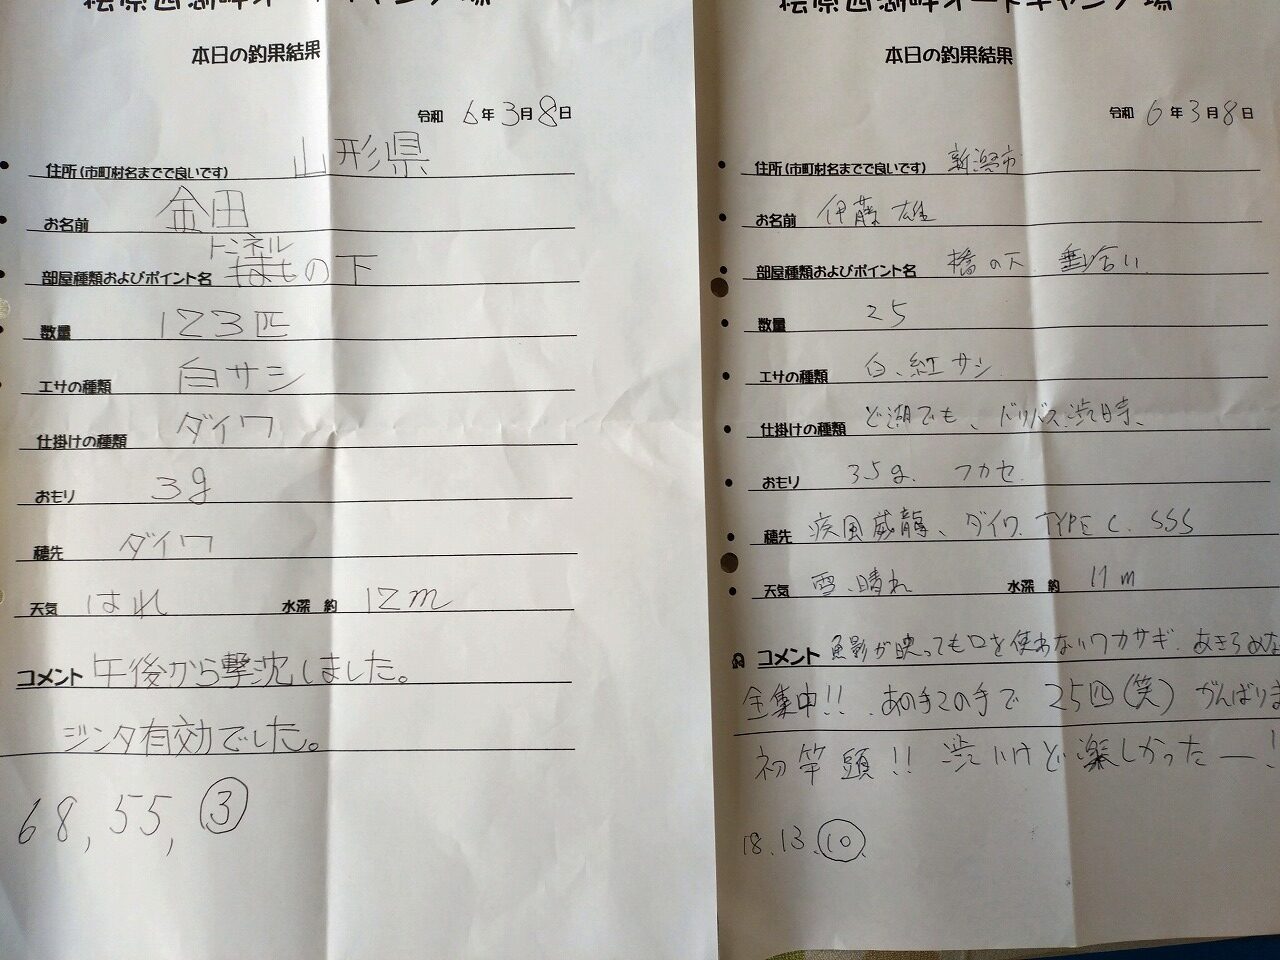 桧原西湖畔オートキャンプ場
本日の釣果結果
令和 6年3月8日
住所(市町村名までで良いです) 山形県
お名前 金田
トンネル
部屋種類およびポイント名 の下
数量 123匹
エサの種類 白サシ
仕掛けの種類 ダイワ
おもり 3g
穂先 ダイワ
天気 はれ 水深 約 12m
コメント 午後から撃沈しました。
ジンタ有効でした。
68, 55, ③
桧原西湖畔オートキャンプ場
本日の釣果結果
令和 6年3月8日
住所(市町村名までで良いです) 新潟市
お名前 伊藤 雄
部屋種類およびポイント名 橋の下 乗合い
数量 25
エサの種類 白、紅サシ
仕掛けの種類 ど湖でも、ドリバス渋時、
おもり 3.5g. フカセ
穂先 疾風威龍、ダイワ TYPE C. SSS
天気 雪、晴れ 水深 約 11m
コメント 魚影が映っても口を使わないワカサギ、あきらめな
全集中!! あの手この手で 25匹(笑) がんばりま
初竿頭!! 渋いけど楽しかったー!
18. 13. ⑩